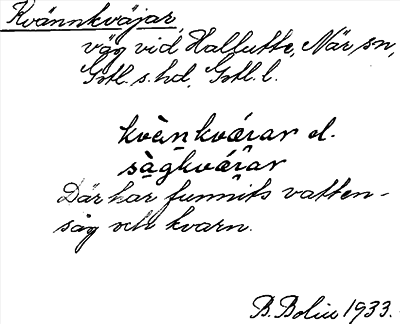 Kvännkväjar,
väg vid Hallutte, När sn,
Gotl. s. hd, Gotl. l.
kvèn̠kvárar el.
sàgkvárar
Där har funnits vatten-
såg och kvarn.
B. Bolin 1933.